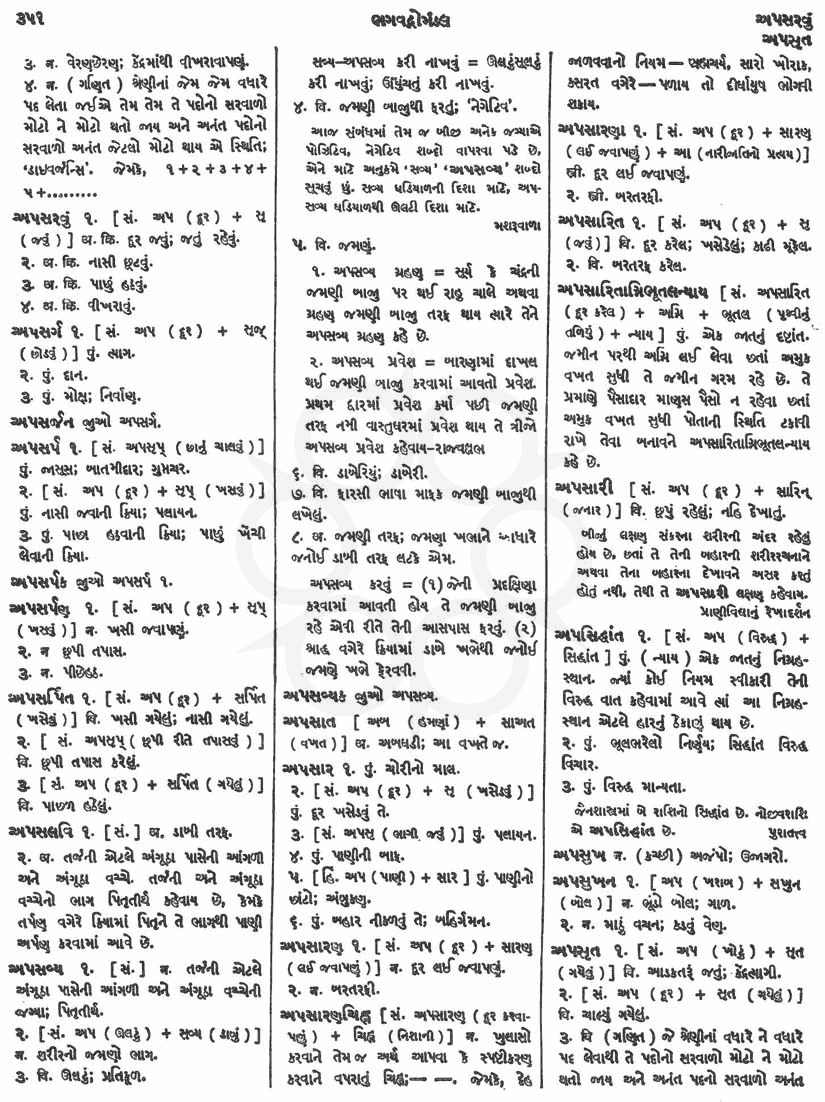 ૩૫૧
ભગવદ્ગોમંડલ
અપસરવું
અપસૃત
૩. ન. વેરણછેરણ; કેંદ્રમાંથી વીખરાવાપણું.
૪. ન. (ગણિત) શ્રેણીનાં જેમ જેમ વધારે
પદ લેતા જઈએ તેમ તેમ તે પદોનો સરવાળો
મોટો ને મોટો થતો જાય અને અનંત પદોનો
સરવાળો અનંત જેટલો મોટો થાય એ સ્થિતિ;
‘ડાઇવર્જન્સ’. જેમકે, ૧+૨+૩+૪+
૫+.........
અપસરવું ૧. [ સં. અપ (દૂર) + સૃ
(જવું) ] અ. ક્રિ. દૂર જવું; જતું રહેવું.
૨. અ. ક્રિ. નાસી છૂટવું.
૩. અ. ક્રિ. પાછું હઠવું.
૪. અ. ક્રિ. વીખરાવું.
અપસર્ગ ૧. [ સં. અપ (દૂર) + સૃજ્
(છોડવું) ] પું. ત્યાગ.
૨. પું. દાન.
૩. પું. મોક્ષ; નિર્વાણ.
અપસર્જન જુઓ અપસર્ગ.
અપસર્પ ૧. [ સં. અપસૃપ્ (છાનું ચાલવું) ]
પું. જાસૂસ; બાતમીદાર; ગુપ્તચર.
૨. [ સં. અપ (દૂર) + સૃપ્ (ખસવું) ]
પું. નાસી જવાની ક્રિયા; પલાયન.
૩. પું. પાછા હઠવાની ક્રિયા; પાછું ખેંચી
લેવાની ક્રિયા.
અપસર્પક જુઓ અપસર્પ ૧.
અપસર્પણ ૧. [ સં. અપ (દૂર) + સૃપ્
(ખસવું) ] ન. ખસી જવાપણું.
૨. ન છૂપી તપાસ.
૩. ન. પીછેહઠ.
અપસર્પિત ૧. [ સં. અપ (દૂર) + સર્પિત
(ખસેલું) ] વિ. ખસી ગયેલું; નાસી ગયેલું.
૨. [ સં. અપસૃપ્ (છૂપી રીતે તપાસવું) ]
વિ. છૂપી તપાસ કરેલું.
૩. [ સં. અપ (દૂર) + સર્પિત (ગયેલું) ]
વિ. પાછળ હઠેલું.
અપસલવિ ૧. [ સં. ] અ. ડાબી તરફ.
૨. અ. તર્જની એટલે અંગૂઠા પાસેની આંગળી
અને અંગૂઠા વચ્ચે. તર્જની અને અંગૂઠા
વચ્ચેનો ભાગ પિતૃતીર્થ કહેવાય છે, કેમકે
તર્પણ વગેરે ક્રિયામાં પિતૃને તે ભાગથી પાણી
અર્પણ કરવામાં આવે છે.
અપસવ્ય ૧. [ સં. ] ન. તર્જની એટલે
અંગૂઠા પાસેની આંગળી અને અંગૂઠા વચ્ચેની
જગ્યા; પિતૃતીર્થ.
૨. [ સં. અપ (ઊલટું) + સવ્ય (ડાબું) ]
ન. શરીરનો જમણો ભાગ.
૩. વિ. ઊલટું; પ્રતિકૂળ.
સવ્ય-અપસવ્ય કરી નાખવું = ઊલટુંસૂલટું
કરી નાખવું; ઊંધુંચતું કરી નાખવું.
૪. વિ. જમણી બાજુથી ફરતું; ‘નેગેટિવ’.
આજ સંબંધમાં તેમ જ બીજી અનેક જગ્યાએ
પોઝિટિવ, નેગેટિવ શબ્દો વાપરવા પડે છે,
એને માટે અનુક્રમે ‘સવ્ય’ ‘અપસવ્ય’ શબ્દો
સૂચવું છું. સવ્ય ઘડિયાળની દિશા માટે, અપ-
સવ્ય ઘડિયાળથી ઊલટી દિશા માટે.
મશરૂવાળા
૫. વિ. જમણું.
૧. અપસવ્ય ગ્રહણ = સૂર્ય કે ચંદ્રની
જમણી બાજુ પર થઈ રાહુ ચાલે અથવા
ગ્રહણ જમણી બાજુ તરફ થાય ત્યારે તેને
અપસવ્ય ગ્રહણ કહે છે.
૨. અપસવ્ય પ્રવેશ = બારણામાં દાખલ
થઈ જમણી બાજુ કરવામાં આવતો પ્રવેશ.
પ્રથમ દ્વારમાં પ્રવેશ કર્યા પછી જમણી
તરફ નમી વાસ્તુઘરમાં પ્રવેશ થાય તે ત્રીજો
અપસવ્ય પ્રવેશ કહેવાય-રાજવલ્લભ
૬. વિ. ડાબેરિયું; ડાબેરી.
૭. વિ. ફારસી ભાષા માફક જમણી બાજુથી
લખેલું.
૮. અ. જમણી તરફ; જમણા ખભાને આધારે
જનોઈ ડાબી તરફ લટકે એમ.
અપસવ્ય કરવું = (૧) જેની પ્રદક્ષિણા
કરવામાં આવતી હોય તે જમણી બાજુ
રહે એવી રીતે તેની આસપાસ ફરવું. (૨)
શ્રાદ્ધ વગેરે ક્રિયામાં ડાબે ખભેથી જનોઈ
જમણે ખભે ફેરવવી.
અપસવ્યક જુઓ અપસવ્ય.
અપસાત [ અબ (હમણાં) + સાઅત
(વખત) ] અ. અબઘડી; આ વખતે જ.
અપસાર ૧. પું. ચોરીનો માલ.
૨. [ સં. અપ (દૂર) + સૃ (ખસેડવું) ]
પું. દૂર ખસેડવું તે.
૩. [ સં. અપસૃ (ભાગી જવું) ] પું. પલાયન.
૪. પું. પાણીની બાફ.
૫. [ હિં. અપ (પાણી) + સાર ] પું. પાણીનો
છાંટો; અંબુકણ.
૬. પું. બહાર નીકળવું તે; બહિર્ગમન.
અપસારણ ૧. [ સં. અપ (દૂર) + સારણ
(લઈ જવાપણું) ] ન. દૂર લઈ જવાપણું.
૨. ન. બરતરફી.
અપસારણચિહ્ન [ સં. અપસારણ (દૂર કરવા-
પણું) + ચિહ્ન (નિશાની) ] ન. ખુલાસો
કરવાને તેમ જ અર્થ આપવા કે સ્પષ્ટીકરણ
કરવાને વપરાતું ચિહ્ન;— —. જેમકે, દેહ
જાળવવાનો નિયમ — બ્રહ્મચર્ય, સારો ખોરાક,
કસરત વગેરે — પળાય તો દીર્ઘાયુષ ભોગવી
શકાય.
અપસારણા ૧. [ સં. અપ (દૂર) + સારણ
(લઈ જવાપણું) + આ (નારીજાતિનો પ્રત્યય) ]
સ્ત્રી. દૂર લઈ જવાપણું.
૨. સ્ત્રી. બરતરફી.
અપસારિત ૧. [ સં. અપ (દૂર) + સૃ
(જવું) ] વિ. દૂર કરેલ; ખસેડેલું; કાઢી મૂકેલ.
૨. વિ. બરતરફ કરેલ.
અપસારિતાગ્નિભૂતલન્યાય [ સં. અપસારિત
(દૂર કરેલ) + અગ્નિ + ભૂતલ (પૃથ્વીનું
તળિયું) + ન્યાય ] પું. એક જાતનું દૃષ્ટાંત.
જમીન પરથી અગ્નિ લઈ લેવા છતાં અમુક
વખત સુધી તે જમીન ગરમ રહે છે. તે
પ્રમાણે પૈસાદાર માણસ પૈસો ન રહેવા છતાં
અમુક વખત સુધી પોતાની સ્થિતિ ટકાવી
રાખે તેવા બનાવને અપસારિતાગ્નિભૂતલન્યાય
કહે છે.
અપસારી [ સં. અપ (દૂર) + સારિન્
(જનાર) ] વિ. છૂપું રહેલું; નહિ દેખાતું.
બીજું લક્ષણ સંકરના શરીરની અંદર રહેલું
હોય છે, છતાં તે તેની બહારની શરીરરચનાને
અથવા તેના બહારના દેખાવને અસર કરતું
હોતું નથી, તેથી તે અપસારી લક્ષણ કહેવાય.
પ્રાણીવિદ્યાનું રેખાદર્શન
અપસિદ્ધાંત ૧. [ સં. અપ (વિરુદ્ધ) +
સિદ્ધાંત ] પું. (ન્યાય) એક જાતનું નિગ્રહ-
સ્થાન. જ્યાં કોઈ નિયમ સ્વીકારી તેની
વિરુદ્ધ વાત કહેવામાં આવે ત્યાં આ નિગ્રહ-
સ્થાન એટલે હારનું ઠેકાણું થાય છે.
૨. પું. ભૂલભરેલો નિર્ણય; સિદ્ધાંત વિરુદ્ધ
વિચાર.
૩. પું. વિરુદ્ધ માન્યતા.
જૈનશાસ્ત્રમાં બે રાશિનો સિદ્ધાંત છે. નોજીવરાશિ
એ અપસિદ્ધાંત છે.
પુરાતત્ત્વ
અપસુખ ન. (કચ્છી) અજંપો; ઉજાગરો.
અપસુખન ૧. [ અપ (ખરાબ) + સખુન
(બોલ) ] ન. ભૂંડો બોલ; ગાળ.
૨. ન. માઠું વચન; કડવું વેણ.
અપસૃત ૧. [ સં. અપ (ખોટું) + સૃત
(ગયેલું) ] વિ. આડકતરું જતું; કેંદ્રત્યાગી.
૨. [ સં. અપ (દૂર) + સૃત (ગયેલું) ]
વિ. ચાલ્યું ગયેલું.
૩. વિ (ગણિત) જે શ્રેણીનાં વધારે ને વધારે
પદ લેવાથી તે પદોનો સરવાળો મોટો ને મોટો
થતો જાય અને અનંત પદનો સરવાળો અનંત